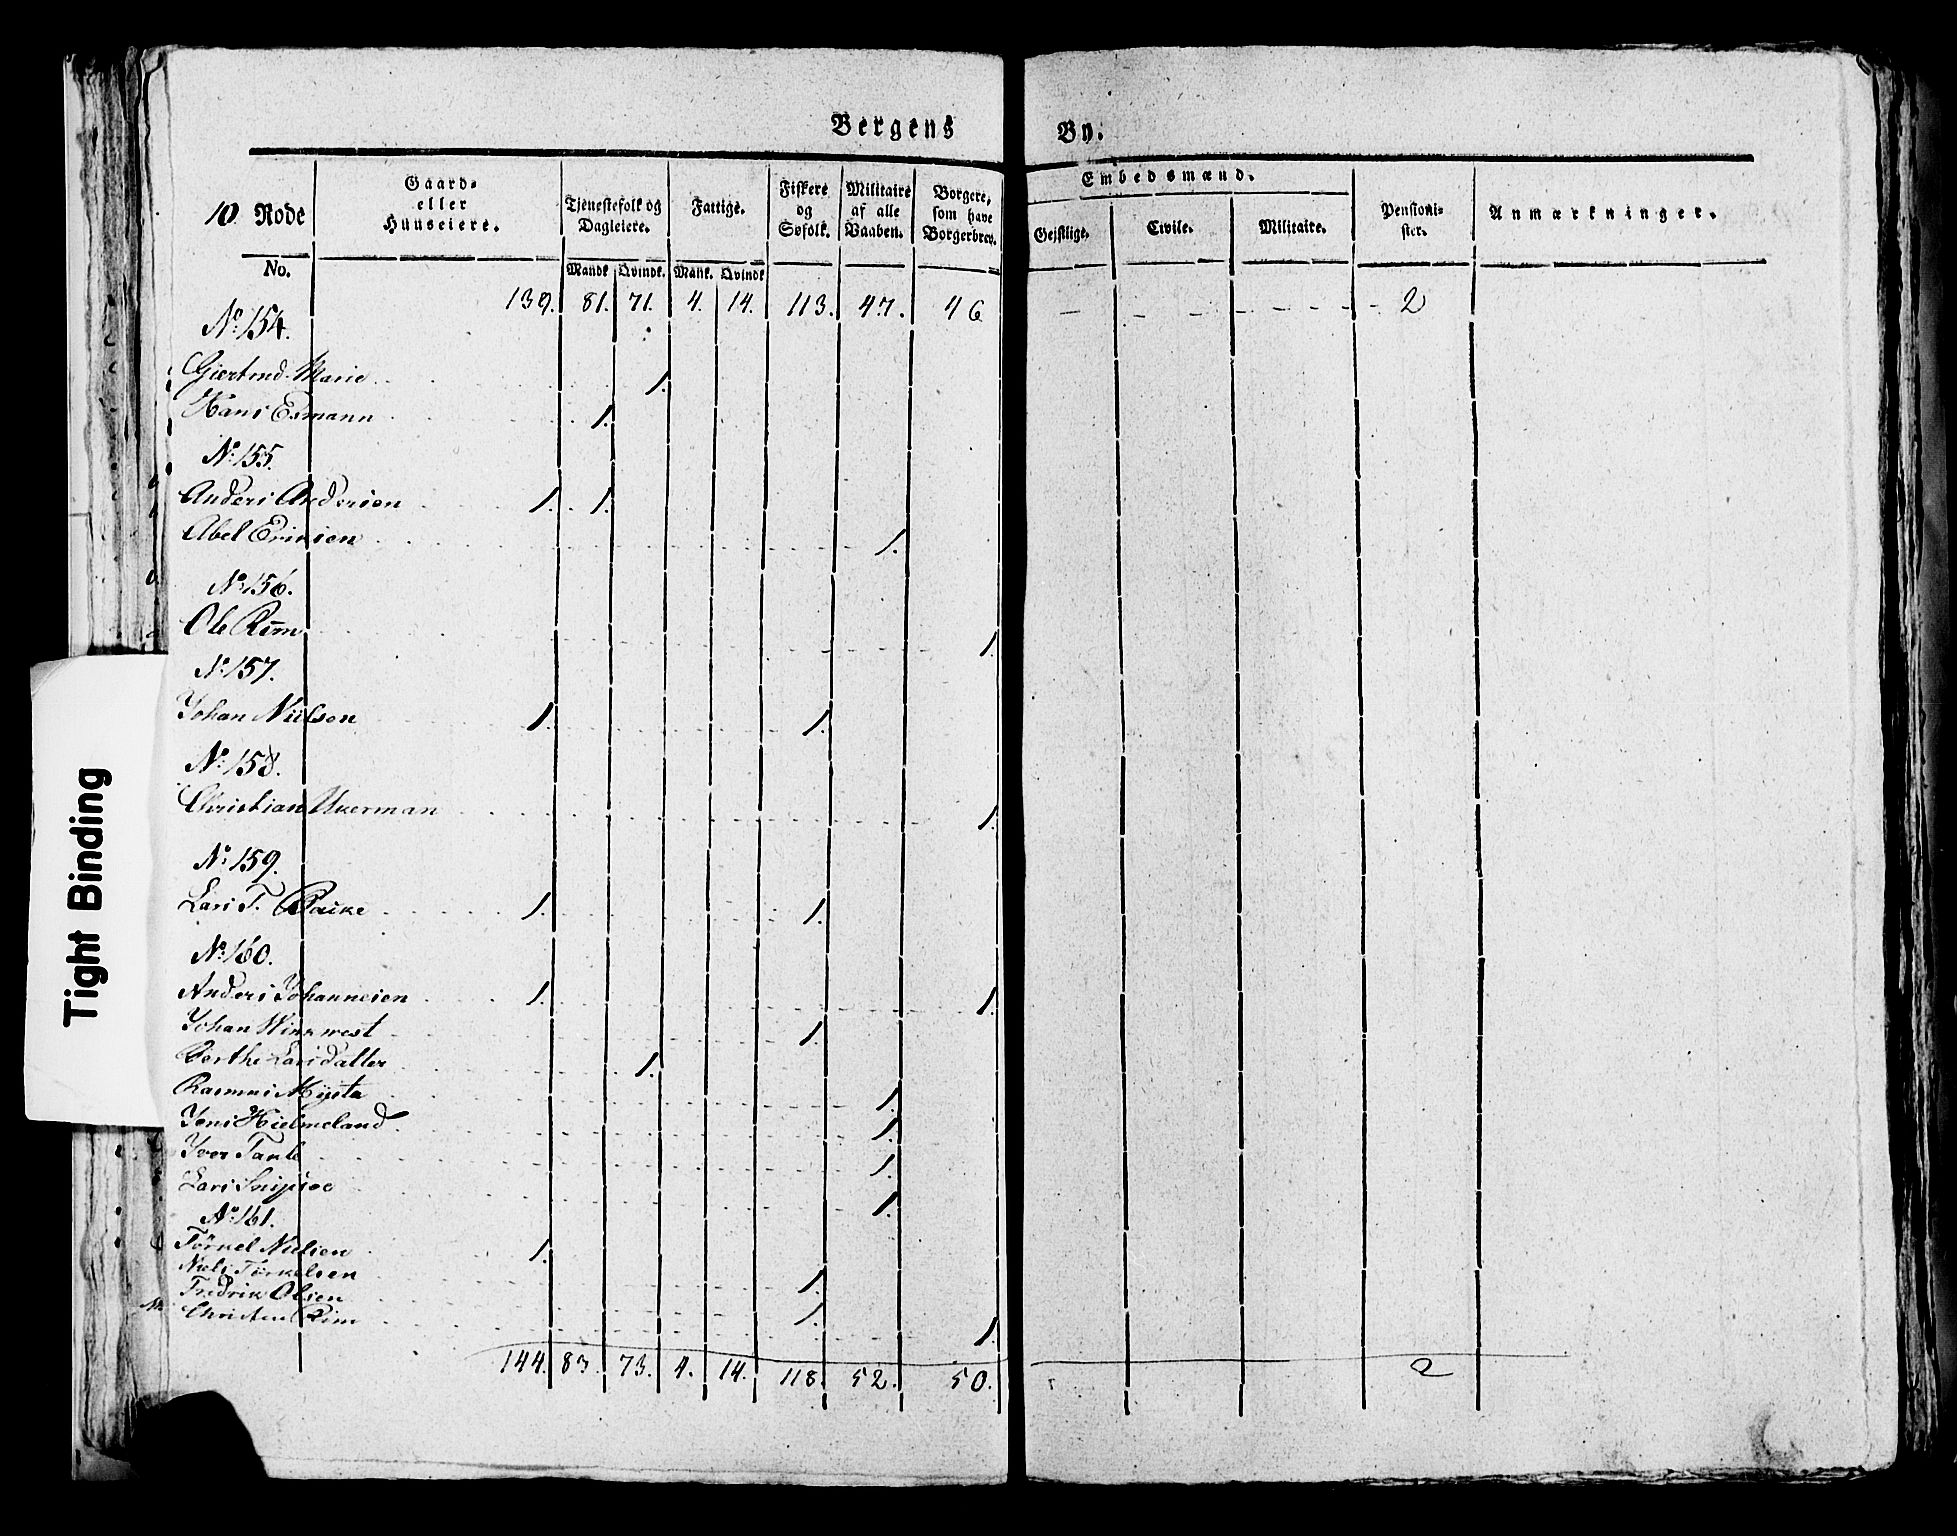 Bergens By.
10 Rode
No.
Gaard-
eller
Huuseiere.
Tjenestefolk og
Dagleiere.
Mandk. Qvindk.
Fattige.
Mank. Qvindk
Fiskere
og
Søfolk.
Militaire
af alle
Vaaben.
Borgere,
som have
Borgerbrev.
Embedsmænd.
Gejstlige. Civile. Militaire.
Pensioni-
ster.
Anmærkninger.
139. 81. 71. 4. 14. 113. 47. 46 2
No 154.
Giertrud Marie 1.
Hans Esmann 1.
No 155.
Anders Andersen 1. 1.
Abel Eriksen 1.
No 156.
Ole Rim 1.
No 157.
Johan Nielsen 1. 1.
No 158.
Christian Ukerman 1.
No 159.
Lars T. 1. 1.
No 160.
Anders Johannesen 1. 1.
Johan 1.
Berthe Larsdatter 1.
Rasmus Mysta 1.
Jens Hielmeland 1.
Iver 1.
Lars 1.
No 161.
Törkel Nielsen 1.
Niels Törkelsen 1.
Fredrik Olsen 1.
Christen Rim 1.
144. 83. 73. 4. 14. 118. 52. 50. 2
Tight Binding